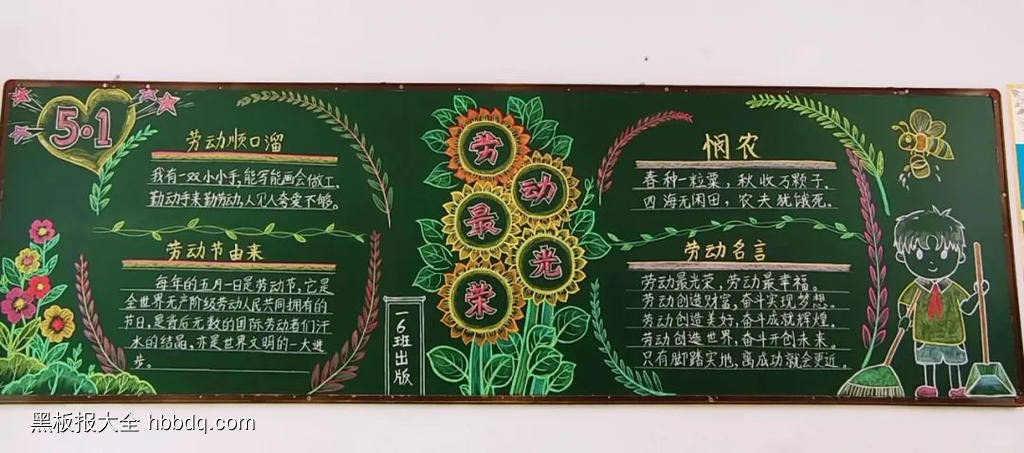 5·1
劳动顺口溜
我有一双小小手,能写能画会做工.
勤动手来勤劳动,人人夸爱不够。
劳动节由来
每年的五月一日是劳动节,它是
全世界无产阶级劳动人民共同拥有的
节日,是背后无数的国际劳动者们汗
水的结晶,亦是世界文明的一大进
步。
劳动最光荣
一6班出版
悯农
春种一粒粟,秋收万颗子.
四海无闲田,农夫犹饿死.
劳动名言
劳动最光荣,劳动最幸福。
劳动创造财富,奋斗实现梦想.
劳动创造美好,奋斗成就辉煌。
劳动创造世界,奋斗开创未来。
只有脚踏实地,离成功就会更近。
黑板报大全 hbbdq.com